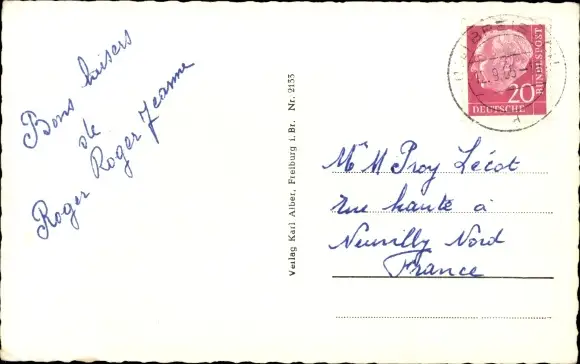 Bons baisers
de
Roger Roger Jeanne
Verlag Karl Alber, Freiburg i. Br. Nr. 2133
20
DEUTSCHE
BUNDESPOST
Mr M Proy Lécot
rue haute à
Neuvilly Nord
France